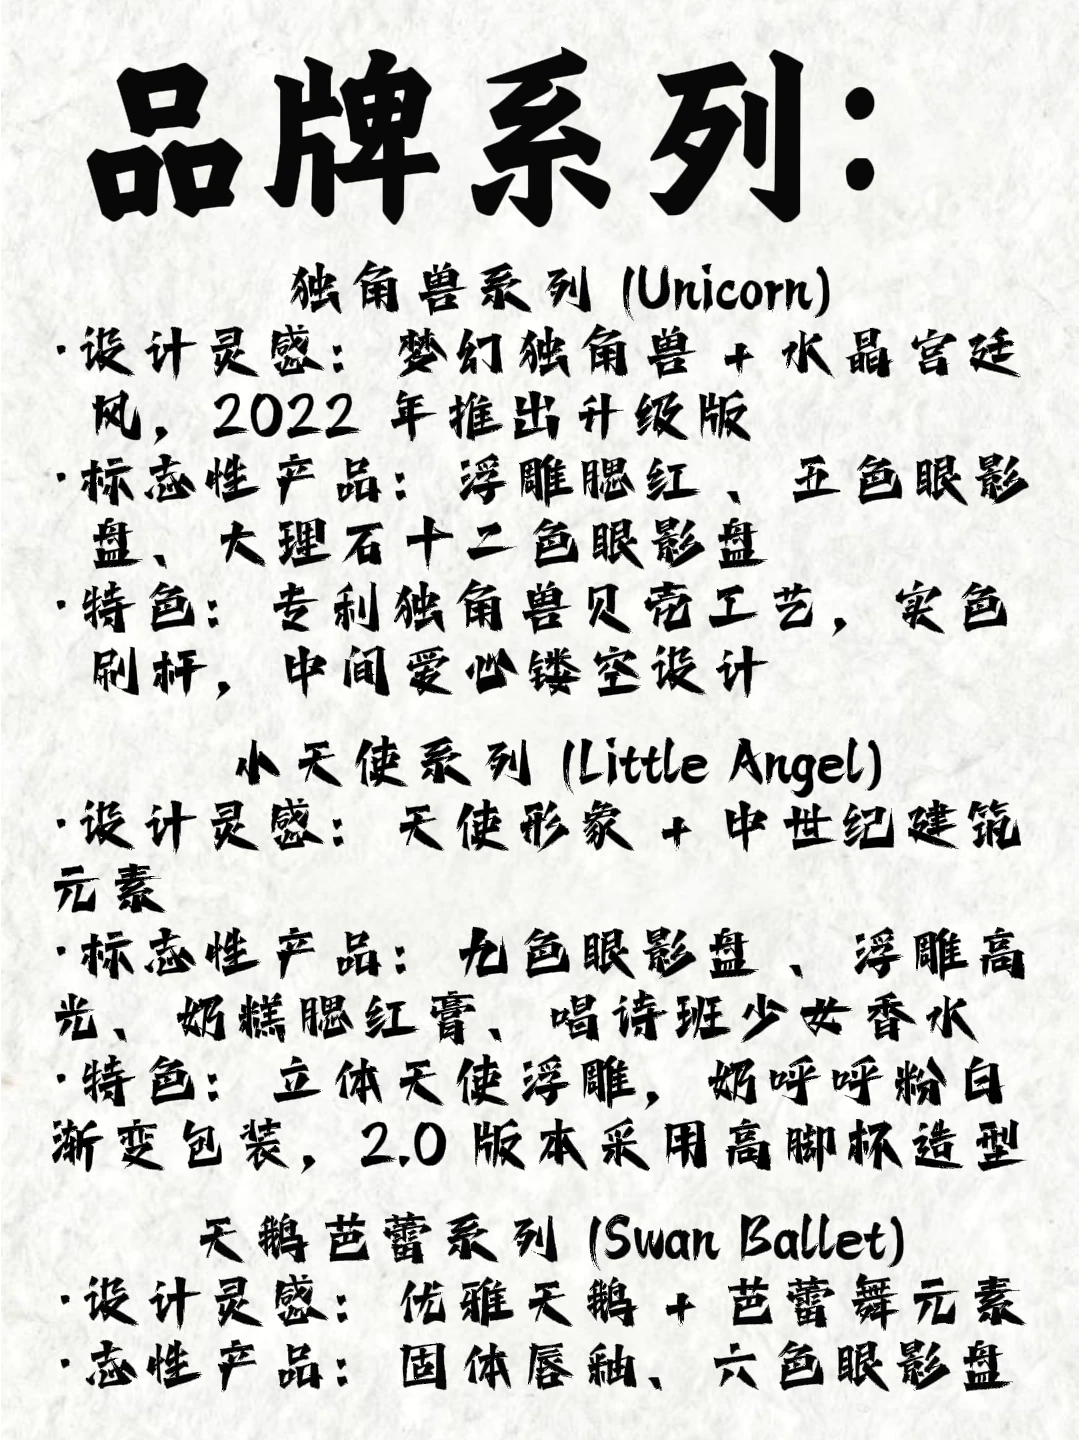 品牌系列：
独角兽系列 (Unicorn)
·设计灵感：梦幻独角兽 + 水晶宫廷
风，2022 年推出升级版
·标志性产品：浮雕腮红 、五色眼影
盘、大理石十二色眼影盘
·特色：专利独角兽贝壳工艺，实色
刷杆，中间爱心镂空设计
小天使系列 (Little Angel)
·设计灵感：天使形象 + 中世纪建筑
元素
·标志性产品：九色眼影盘 、浮雕高
光、奶糕腮红膏、唱诗班少女香水
·特色：立体天使浮雕，奶呼呼粉白
渐变包装，2.0 版本采用高脚杯造型
天鹅芭蕾系列 (Swan Ballet)
·设计灵感：优雅天鹅 + 芭蕾舞元素
·志性产品：固体唇釉、六色眼影盘